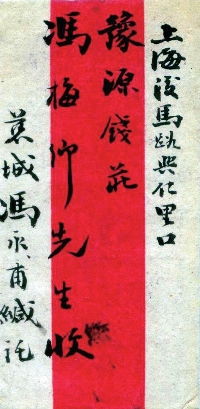 上海後馬路興仁里口
豫源錢莊
馮梅卿先生收
慈城馮永甫緘託